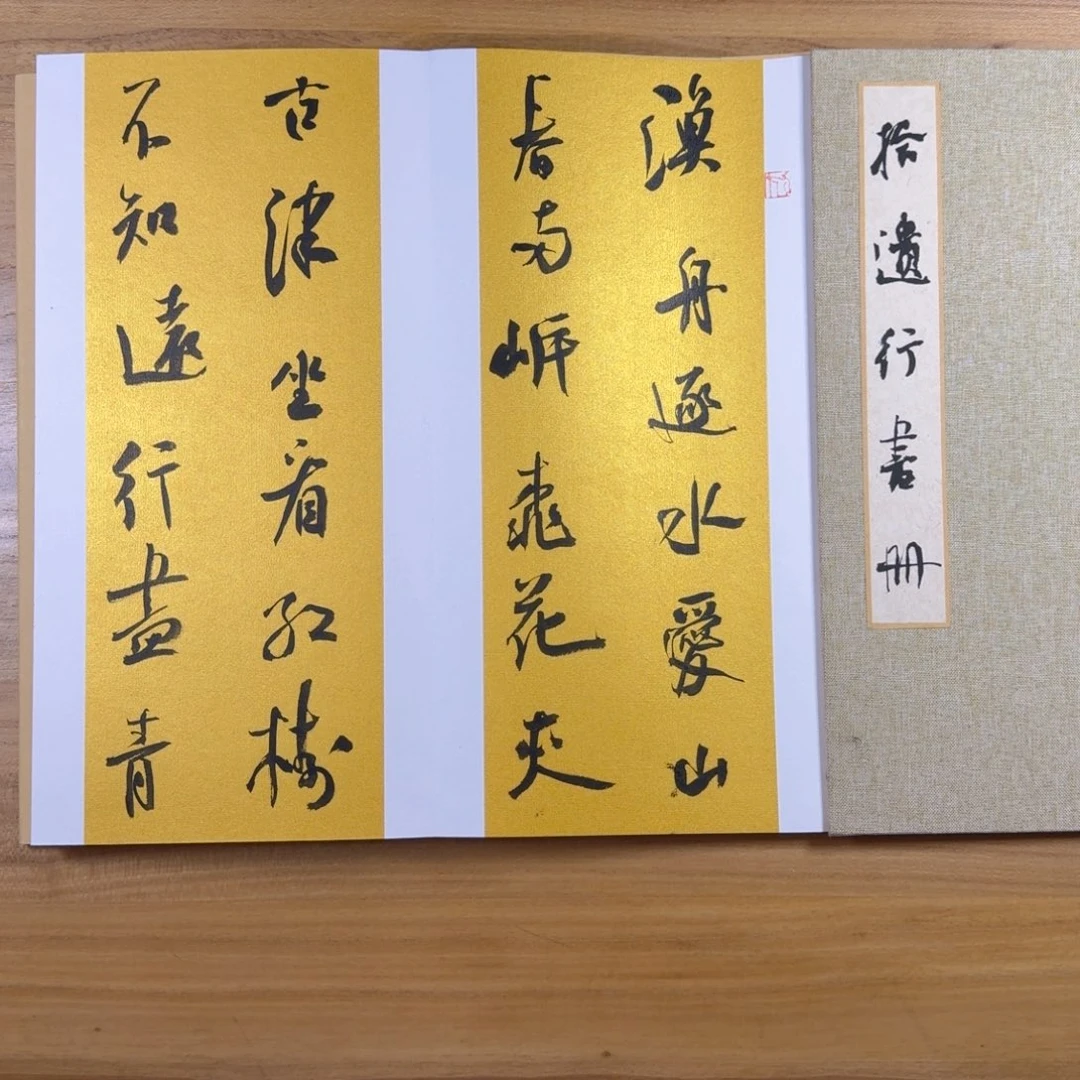 拾遺行書冊
漁舟逐水愛山
春兩岸桃花夾
古津坐看紅樹
不知遠行盡青